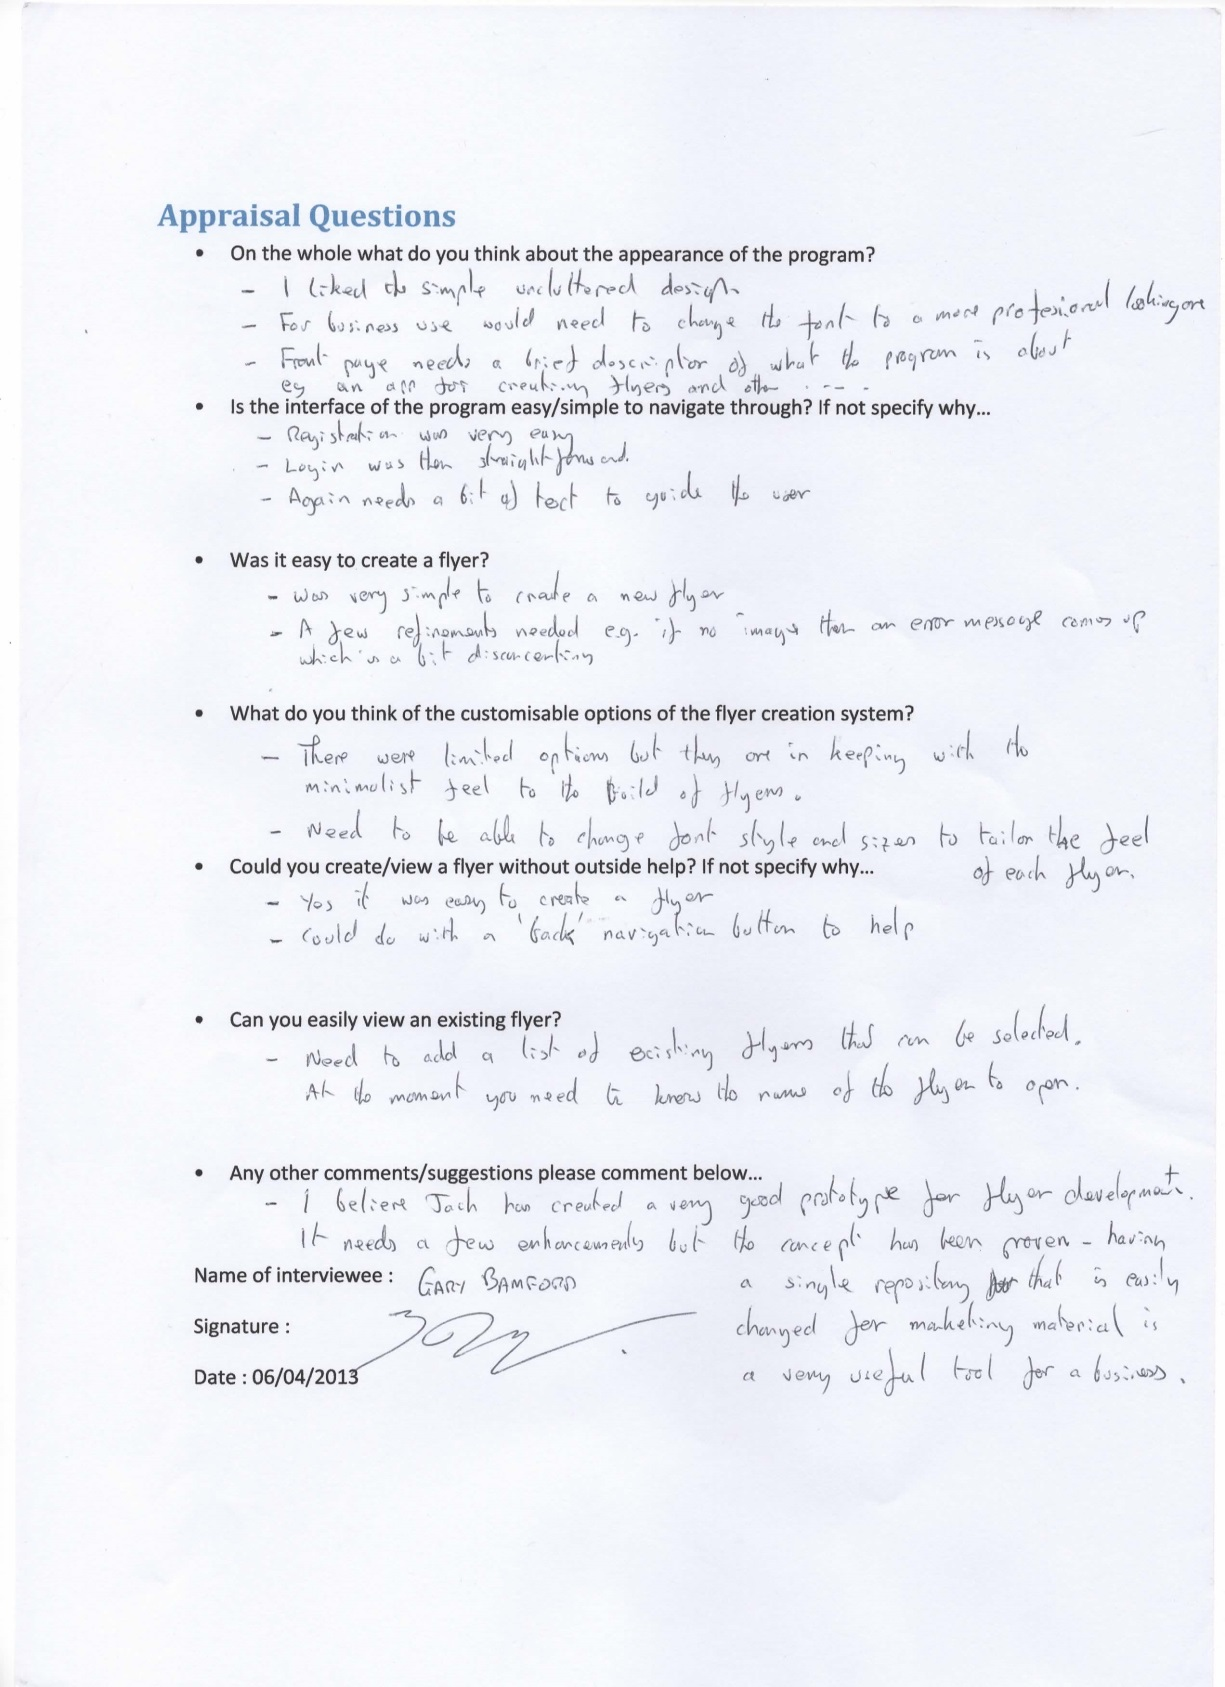 Appraisal Questions
• On the whole what do you think about the appearance of the program?
- I liked the simple uncluttered design.
- For business use would need to change the font to a more profesional looking one
- Front page needs a brief descriptor of what the program is about
eg an app for creating flyers and other .....
• Is the interface of the program easy/simple to navigate through? If not specify why...
- Registration was very easy
- Login was then straight forward.
- Again needs a bit of text to guide the user
• Was it easy to create a flyer?
- Was very simple to create a new flyer
- A few refinements needed e.g. if no images then an error message comes up
which is a bit disconcerting
• What do you think of the customisable options of the flyer creation system?
- There were limited options but they are in keeping with the
minimalist feel to the build of flyers.
- Need to be able to change font style and sizes to tailor the feel
of each flyer.
• Could you create/view a flyer without outside help? If not specify why...
- Yes it was easy to create a flyer
- Could do with a 'back' navigation button to help
• Can you easily view an existing flyer?
- Need to add a list of existing flyers that can be selected.
At the moment you need to know the name of the flyer to open.
• Any other comments/suggestions please comment below...
- I believe Jach has created a very good prototype for flyer development.
It needs a few enhancements but the concept has been proven - having
a single repository that is easily
changed for marketing material is
a very useful tool for a business.
Name of interviewee : GARY BAMFORD
Signature :
Date : 06/04/2013